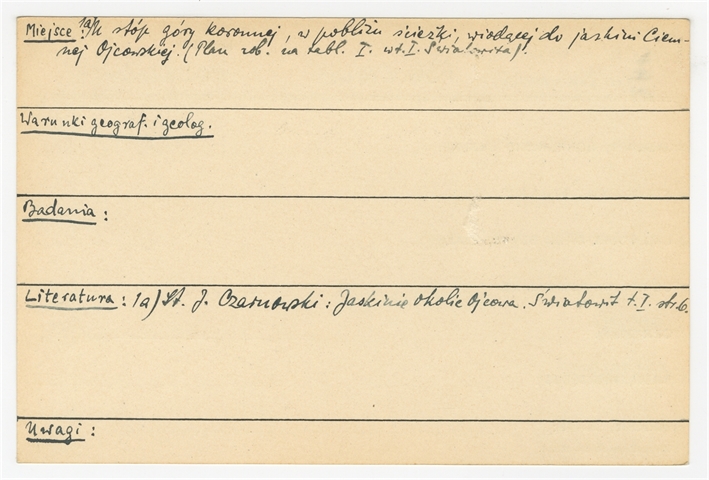 Miejsce: 1a/ U stóp góry koronnej, w pobliżu ścieżki, wiodącej do jaskini Ciem-
nej Ojcowskiej. (Plan rob. na tabl. I. w t. I. Światowita).
Warunki geograf. i geolog.
Badania:
Literatura: 1a) St. J. Czarnowski: Jaskinie okolic Ojcowa. Światowit t. I. str. 6.
Uwagi: